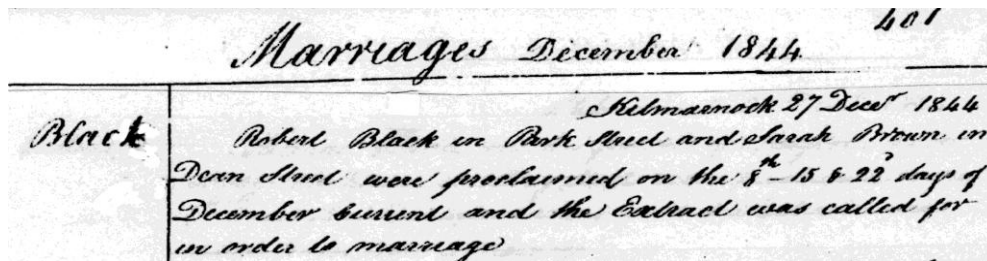 401
Marriages December 1844
Kilmarnock 27 Decr 1844
Black
Robert Black in Park Street and Sarah Brown in
Dean Street were proclaimed on the 8th - 15 & 22d days of
December Current and the Extract was called for
in order to marriage